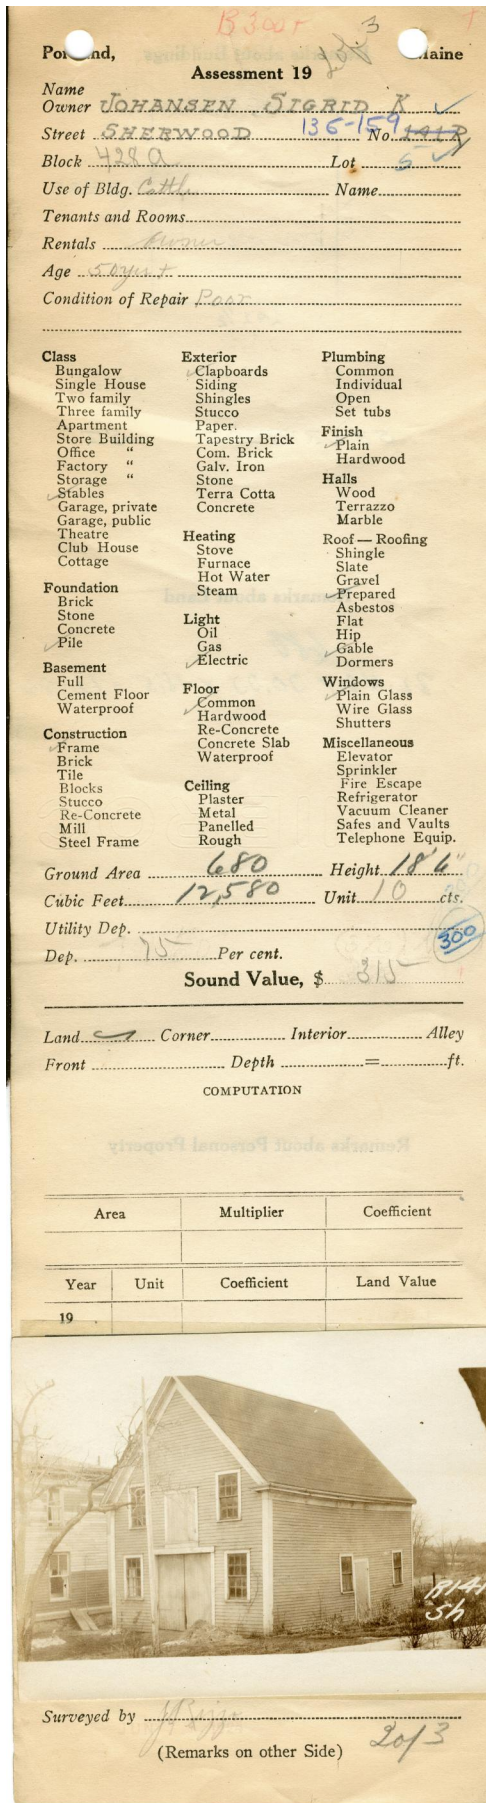 B 300 r
3
Portland, Maine
Assessment 19
Name
Owner JOHANSEN, SIGRID K
Street SHERWOOD 136-159 No. 141R
Block 428A Lot 5
Use of Bldg. Cattle Name
Tenants and Rooms
Rentals Owner
Age 50 yrs +
Condition of Repair Poor
Class
Bungalow
Single House
Two family
Three family
Apartment
Store Building
Office "
Factory "
Storage "
Stables
Garage, private
Garage, public
Theatre
Club House
Cottage
Foundation
Brick
Stone
Concrete
Pile
Basement
Full
Cement Floor
Waterproof
Construction
Frame
Brick
Tile
Blocks
Stucco
Re-Concrete
Mill
Steel Frame
Exterior
Clapboards
Siding
Shingles
Stucco
Paper.
Tapestry Brick
Com. Brick
Galv. Iron
Stone
Terra Cotta
Concrete
Heating
Stove
Furnace
Hot Water
Steam
Light
Oil
Gas
Electric
Floor
Common
Hardwood
Re-Concrete
Concrete Slab
Waterproof
Ceiling
Plaster
Metal
Panelled
Rough
Plumbing
Common
Individual
Open
Set tubs
Finish
Plain
Hardwood
Halls
Wood
Terrazzo
Marble
Roof — Roofing
Shingle
Slate
Gravel
Prepared
Asbestos
Flat
Hip
Gable
Dormers
Windows
Plain Glass
Wire Glass
Shutters
Miscellaneous
Elevator
Sprinkler
Fire Escape
Refrigerator
Vacuum Cleaner
Safes and Vaults
Telephone Equip.
Ground Area 680 Height 18' 6"
Cubic Feet 12,580 Unit 10 cts.
Utility Dep.
300
Dep. 75 Per cent.
Sound Value, $ 315
Land Corner Interior Alley
Front Depth = ft.
COMPUTATION
Remarks about Personal Property
Area Multiplier Coefficient
Year Unit Coefficient Land Value
19
R141
Sh
Surveyed by
(Remarks on other Side) 2 of 3